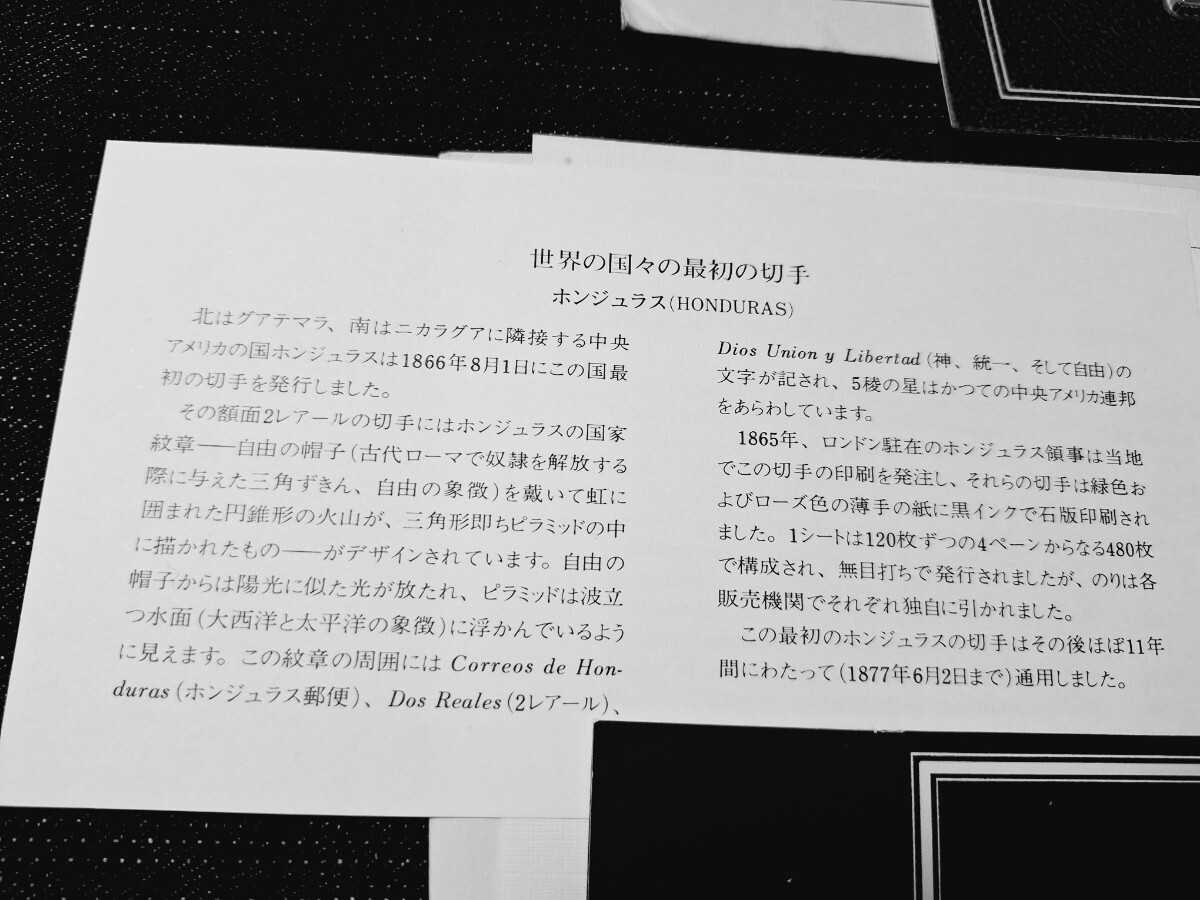 世界の国々の最初の切手
ホンジュラス(HONDURAS)
北はグアテマラ、南はニカラグアに隣接する中央
アメリカの国ホンジュラスは1866年8月1日にこの国最
初の切手を発行しました。
その額面2レアールの切手にはホンジュラスの国家
紋章——自由の帽子(古代ローマで奴隷を解放する
際に与えた三角ずきん、自由の象徴)を戴いて虹に
囲まれた円錐形の火山が、三角形即ちピラミッドの中
に描かれたもの——がデザインされています。自由の
帽子からは陽光に似た光が放たれ、ピラミッドは波立
つ水面(大西洋と太平洋の象徴)に浮かんでいるよう
に見えます。この紋章の周囲には Correos de Hon-
duras(ホンジュラス郵便)、Dos Reales(2レアール)、
Dios Union y Libertad(神、統一、そして自由)の
文字が記され、5稜の星はかつての中央アメリカ連邦
をあらわしています。
1865年、ロンドン駐在のホンジュラス領事は当地
でこの切手の印刷を発注し、それらの切手は緑色お
よびローズ色の薄手の紙に黒インクで石版印刷され
ました。1シートは120枚ずつの4ペーンからなる480枚
で構成され、無目打ちで発行されましたが、のりは各
販売機関でそれぞれ独自に引かれました。
この最初のホンジュラスの切手はその後ほぼ11年
間にわたって(1877年6月2日まで)通用しました。